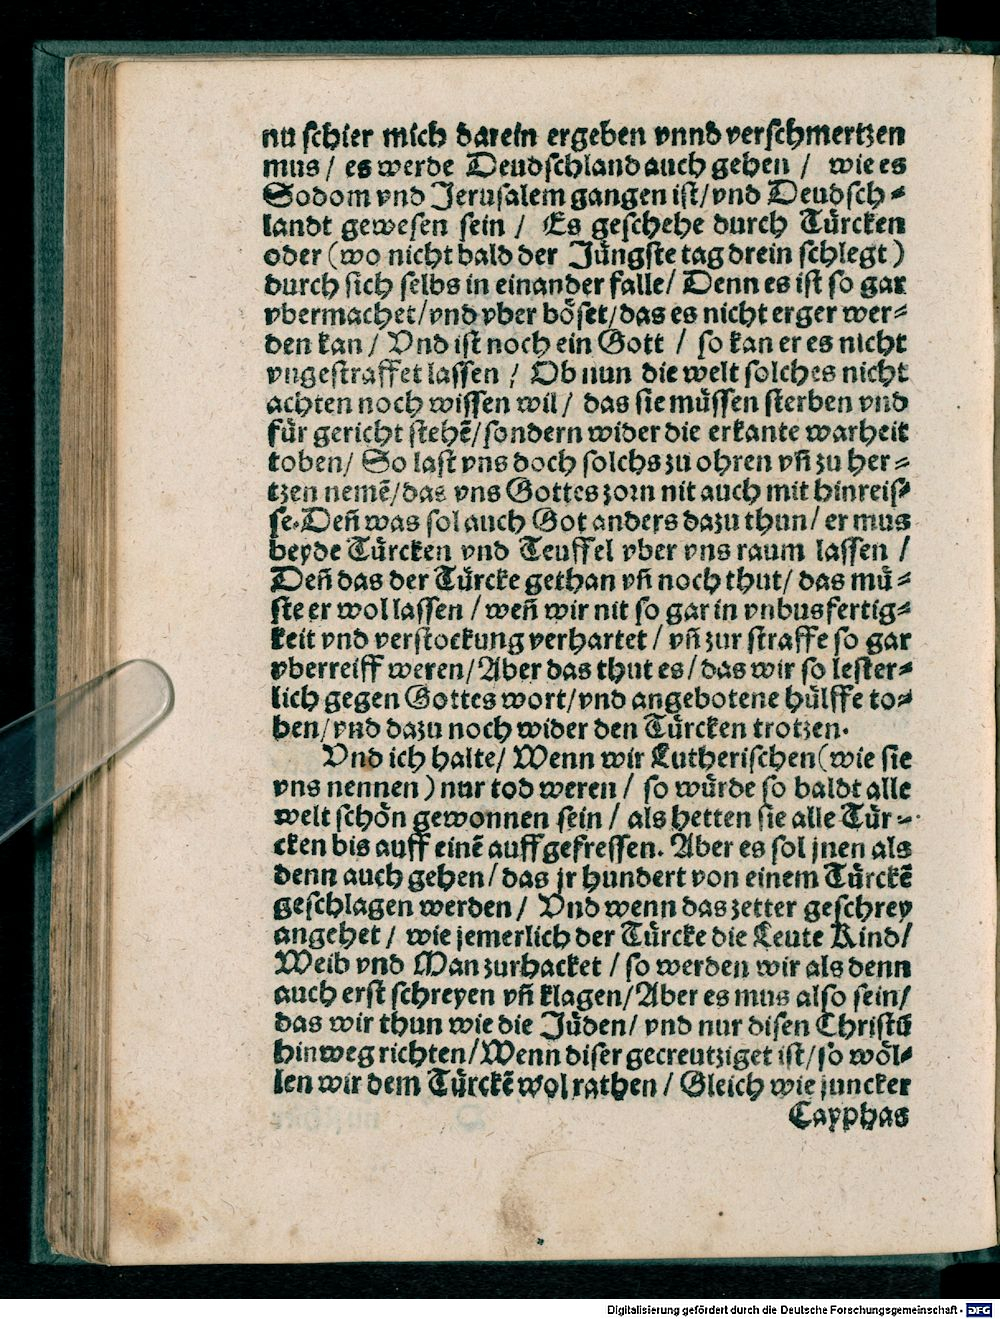 nu schier mich darein ergeben vnnd verschmertzen
mus / es werde Deudschland auch gehen / wie es
Sodom vnd Jerusalem gangen ist / vnd Deudsch⸗
landt gewesen sein / Es geschehe durch Türcken
oder (wo nicht bald der Jüngste tag drein schlegt)
durch sich selbs in einander falle / Denn es ist so gar
vbermachet / vnd vber böset / das es nicht erger wer⸗
den kan / Vnd ist noch ein Gott / so kan er es nicht
vngestraffet lassen / Ob nun die welt solches nicht
achten noch wissen wil / das sie müssen sterben vnd
für gericht stehē / sondern wider die erkante warheit
toben / So last vns doch solchs zu ohren vñ zu her⸗
tzen nemē / das vns Gottes zorn nit auch mit hinreis⸗
se. Deñ was sol auch Got anders dazu thun / er mus
beyde Türcken vnd Teuffel vber vns raum lassen /
Deñ das der Türcke gethan vñ noch thut / das mü⸗
ste er wol lassen / weñ wir nit so gar in vnbusfertig⸗
keit vnd verstockung verhartet / vñ zur straffe so gar
vberreiff weren / Aber das thut es / das wir so lester⸗
lich gegen Gottes wort / vnd angebotene hülffe to⸗
ben / vnd dazu noch wider den Türcken trotzen.
Vnd ich halte / Wenn wir Lutherischen (wie sie
vns nennen) nur tod weren / so würde so baldt alle
welt schön gewonnen sein / als hetten sie alle Tür⸗
cken bis auff einē auffgefressen. Aber es sol jnen als
denn auch gehen / das jr hundert von einem Türckē
geschlagen werden / Vnd wenn das zetter geschrey
angehet / wie jemerlich der Türcke die Leute Kind /
Weib vnd Man zurhacket / so werden wir als denn
auch erst schreyen vñ klagen / Aber es mus also sein /
das wir thun wie die Jüden / vnd nur disen Christū
hinweg richten / Wenn diser gecreutziget ist / so wöl⸗
len wir dem Türckē wol rathen / Gleich wie juncker
Cayphas
Digitalisierung gefördert durch die Deutsche Forschungsgemeinschaft - DFG